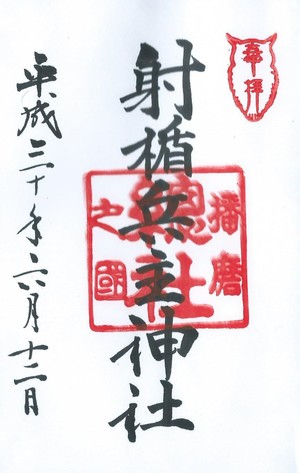 奉拝
射楯兵主神社
播磨
總社
之國
平成三十年六月十二日